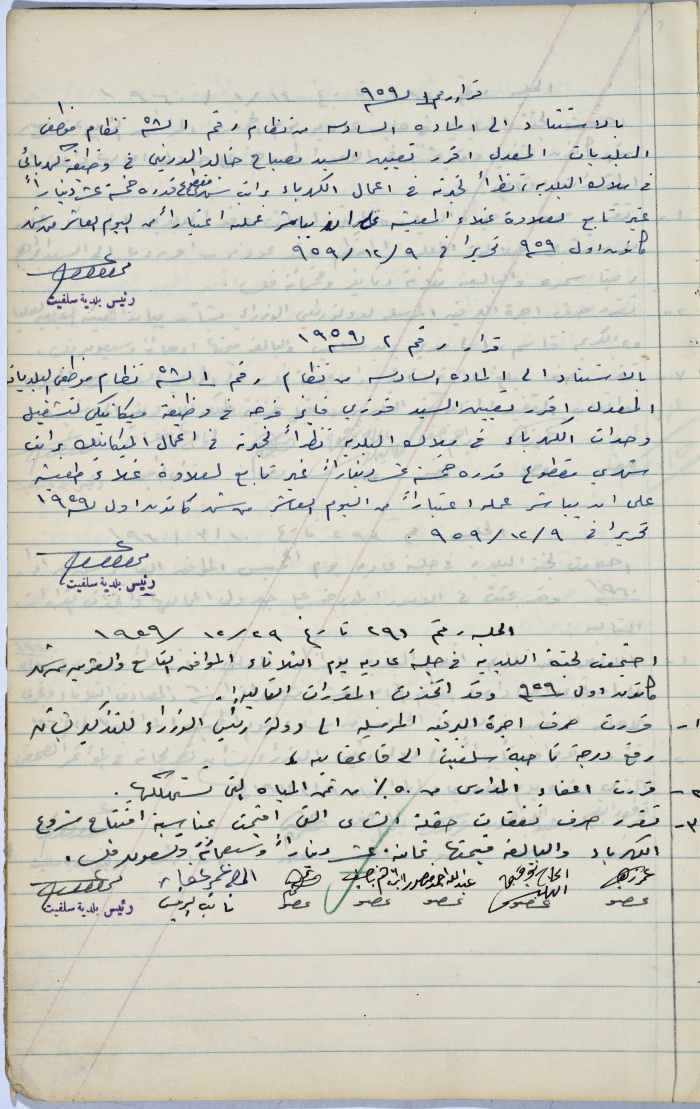 قرار رقم ١ لسنة ٩٥٩
بالاستناد الى المادة السادسة من نظام رقم ١ لسنة ٥٨ نظام موظفي
البلديات المعدل اقرر تعيين السيد مصباح خالد الدريني في وظيفة كهربائي
في ملاك البلدية نظراً لخبرته في اعمال الكهرباء براتب شهري مقطوع قدره خمسة عشر ديناراً
غير تابع لعلاوة غلاء المعيشة على ان يباشر عمله اعتباراً من اليوم العاشر من شهر
كانون اول ٩٥٩ تحريرا في ٩/١٢/٩٥٩
رئيس بلدية سلفيت
قرار رقم ٢ لسنة ١٩٥٩
بالاستناد الى المادة السادسة من نظام رقم ١ لسنة ٥٨ نظام موظفي البلديات
المعدل اقرر تعيين السيد فوزي فايز فرحه في وظيفة ميكانيكي لتشغيل
وحدات الكهرباء في ملاك البلدية نظراً لخبرته في اعمال الميكانيك براتب
شهري مقطوع قدره خمسة عشر ديناراً غير تابع لعلاوة غلاء المعيشة
على ان يباشر عمله اعتباراً من اليوم العاشر من شهر كانون اول لسنة ١٩٥٩
تحريرا في ٩/١٢/٩٥٩
رئيس بلدية سلفيت
الجلسه رقم ٢٩١ تاريخ ٢٩/١٢/١٩٥٩
اجتمعت لجنة البلدية في جلسة عادية يوم الثلاثاء الموافق التاسع والعشرين من شهر
كانون اول ٩٥٩ وقد اتخذت المقررات التالية :
١- قررت صرف اجرة البرقيه المرسله الى دولة رئيس الوزراء للتذكير بشأن
رفع درجة ناحية سلفيت الى قائمقاميه
٢- قررت اعفاء المدارس من ٥٠٪ من ثمن المياه التي تستهلكها .
٣- تقرر صرف نفقات حفلة الشاي التي اقيمت بمناسبة افتتاح مشروع
الكهرباء والبالغه قيمتها ثمانية عشر ديناراً وسبعمائة وتسعون فلس .
عضو عضو عضو عضو عضو نائب الرئيس
رئيس بلدية سلفيت